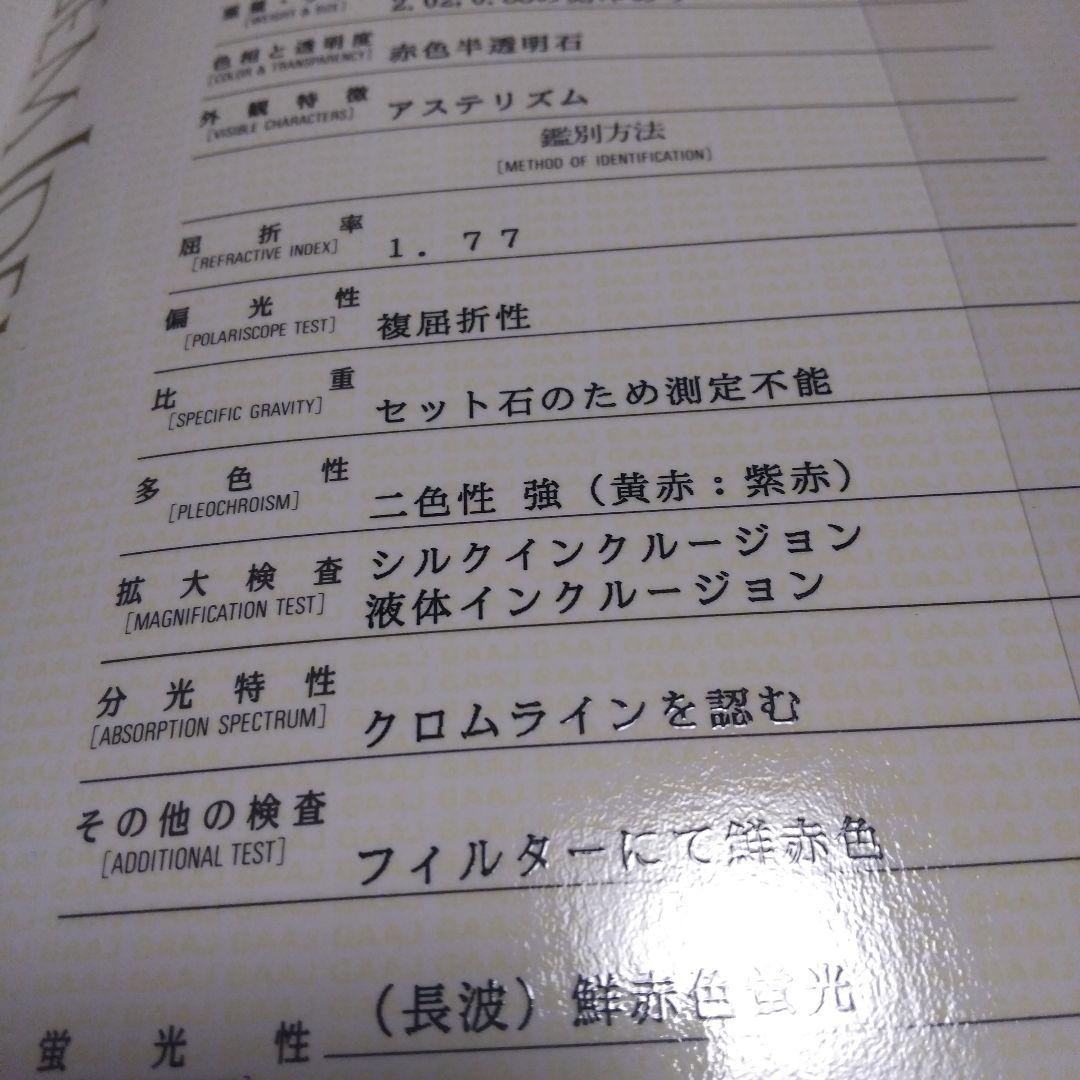 [WEIGHT & SIZE]
色相と透明度
[COLOR & TRANSPARENCY] 赤色半透明石
外観特徴
[VISIBLE CHARACTERS] アステリズム
鑑別方法
[METHOD OF IDENTIFICATION]
屈折率
[REFRACTIVE INDEX] 1.77
偏光性
[POLARISCOPE TEST] 複屈折性
比重
[SPECIFIC GRAVITY] セット石のため測定不能
多色性
[PLEOCHROISM] 二色性 強(黄赤:紫赤)
拡大検査 シルクインクルージョン
[MAGNIFICATION TEST] 液体インクルージョン
分光特性
[ABSORPTION SPECTRUM] クロムラインを認む
その他の検査
[ADDITIONAL TEST] フィルターにて鮮赤色
(長波)鮮赤色蛍光
蛍光性